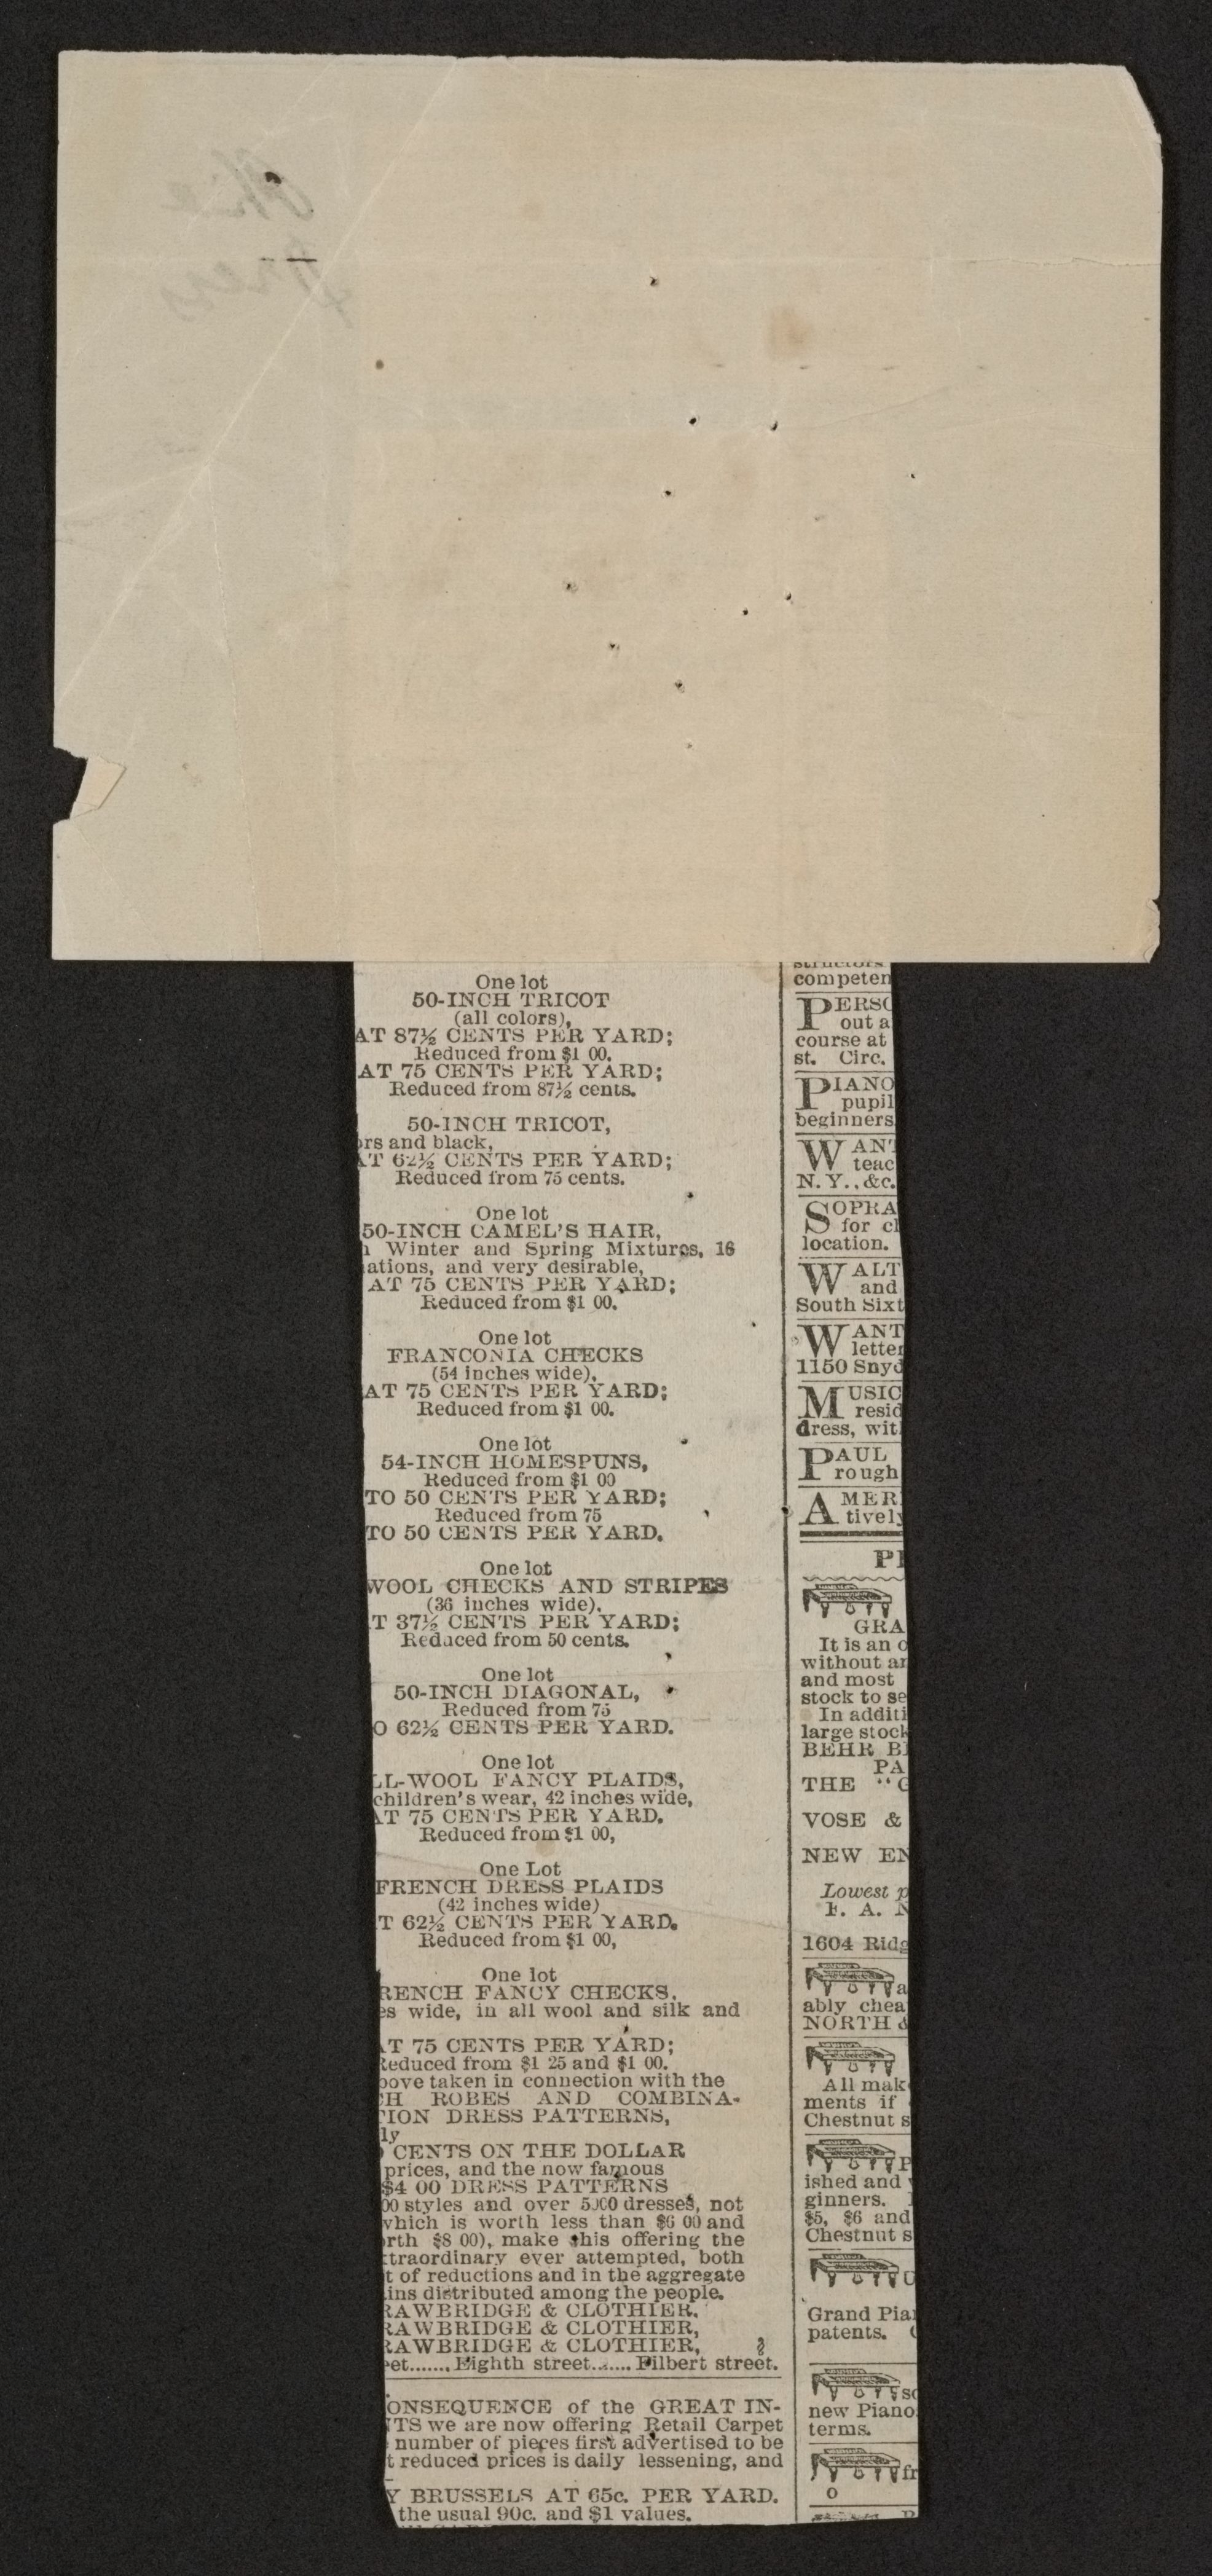 One lot
50-INCH TRICOT
(all colors),
AT 87½ CENTS PER YARD;
Reduced from $1 00.
AT 75 CENTS PER YARD;
Reduced from 87½ cents.
50-INCH TRICOT,
rs and black,
AT 62½ CENTS PER YARD;
Reduced from 75 cents.
One lot
50-INCH CAMEL'S HAIR,
Winter and Spring Mixtures, 16
ations, and very desirable,
AT 75 CENTS PER YARD;
Reduced from $1 00.
One lot
FRANCONIA CHECKS
(54 inches wide),
AT 75 CENTS PER YARD;
Reduced from $1 00.
One lot
54-INCH HOMESPUNS,
Reduced from $1 00
TO 50 CENTS PER YARD;
Reduced from 75
TO 50 CENTS PER YARD.
One lot
WOOL CHECKS AND STRIPES
(36 inches wide),
T 37½ CENTS PER YARD;
Reduced from 50 cents.
One lot
50-INCH DIAGONAL,
Reduced from 75
O 62½ CENTS PER YARD.
One lot
LL-WOOL FANCY PLAIDS,
children's wear, 42 inches wide,
AT 75 CENTS PER YARD.
Reduced from $1 00,
One Lot
FRENCH DRESS PLAIDS
(42 inches wide)
T 62½ CENTS PER YARD.
Reduced from $1 00,
One lot
RENCH FANCY CHECKS,
es wide, in all wool and silk and
AT 75 CENTS PER YARD;
Reduced from $1 25 and $1 00.
bove taken in connection with the
CH ROBES AND COMBINA-
TION DRESS PATTERNS,
ly
CENTS ON THE DOLLAR
prices, and the now famous
$4 00 DRESS PATTERNS
00 styles and over 5000 dresses, not
which is worth less than $6 00 and
rth $8 00), make this offering the
traordinary ever attempted, both
t of reductions and in the aggregate
ins distributed among the people.
RAWBRIDGE & CLOTHIER,
RAWBRIDGE & CLOTHIER,
RAWBRIDGE & CLOTHIER,
et....... Eighth street....... Filbert street.
ONSEQUENCE of the GREAT IN-
NTS we are now offering Retail Carpet
number of pieces first advertised to be
t reduced prices is daily lessening, and
Y BRUSSELS AT 65c. PER YARD.
the usual 90c. and $1 values.
structors
competen
PERSO
out a
course at
st. Circ.
PIANO
pupil
beginners
WANT
teac
N. Y., &c.
SOPRA
for cl
location.
WALT
and
South Sixt
WANT
letter
1150 Snyd
MUSIC
resid
dress, wit
PAUL
rough
AMER
tively
PI
GRA
It is an o
without ar
and most
stock to se
In additi
large stock
BEHR B
PA
THE "G
VOSE &
NEW EN
Lowest p
F. A. N
1604 Ridg
a
ably chea
NORTH &
All mak
ments if
Chestnut s
P
ished and
ginners.
$5, $6 and
Chestnut s
U
Grand Pia
patents.
so
new Piano
terms.
fr
o